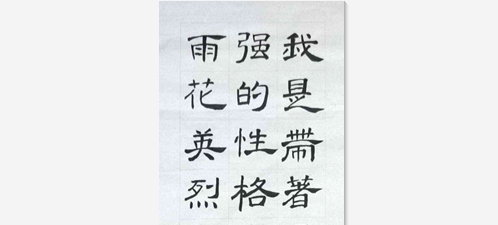 我是帶著
强的性格
雨花英烈